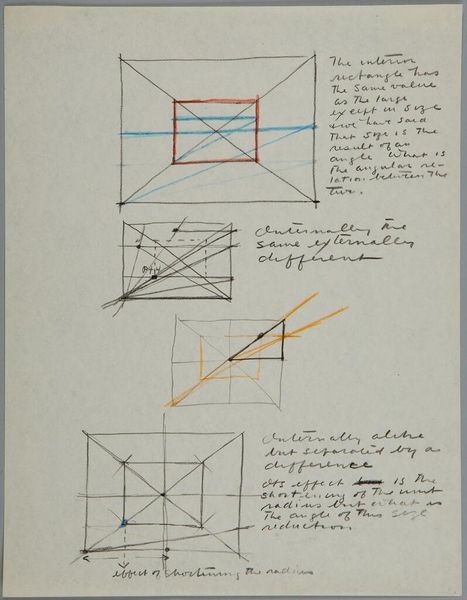 The interior
rectangle has
the same value
as the large
except in size
& we have said
that size is the
result of an
angle what is
the angular re-
lation between the
two.
Internally the
same externally
different
Internally alike
but separated by a
difference
Its effect is the
shortening of the unit
radius but what is
the angle of this size
reduction.
effect of shortening the radius